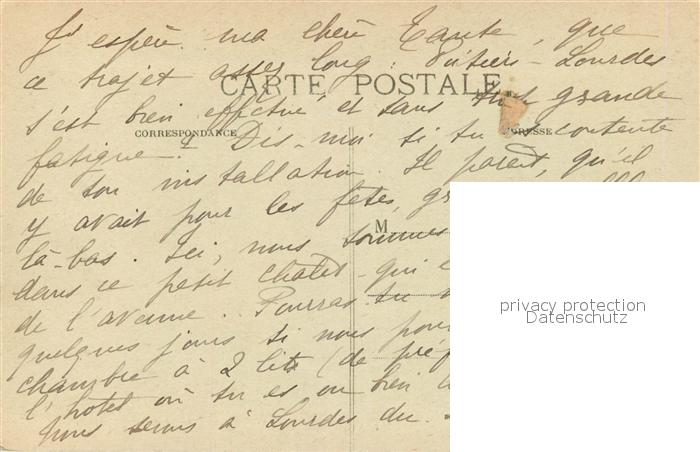 J'espère ma chère Tante, que
ce trajet assez long : Poitiers - Lourdes
CARTE POSTALE
s'est bien effectué et sans trop grande
CORRESPONDANCE
fatigue ? Dis-moi si tu es contente
de ton installation. Il paraît, qu'il
y avait pour les fêtes,
M
là-bas. Ici, nous sommes
dans ce petit chalet - qui
de l'avenue. Pourras-tu
quelques jours si nous
chambre à 2 lits (de
l'hôtel où tu es ou bien
nous serons à Lourdes du
privacy protection
Datenschutz